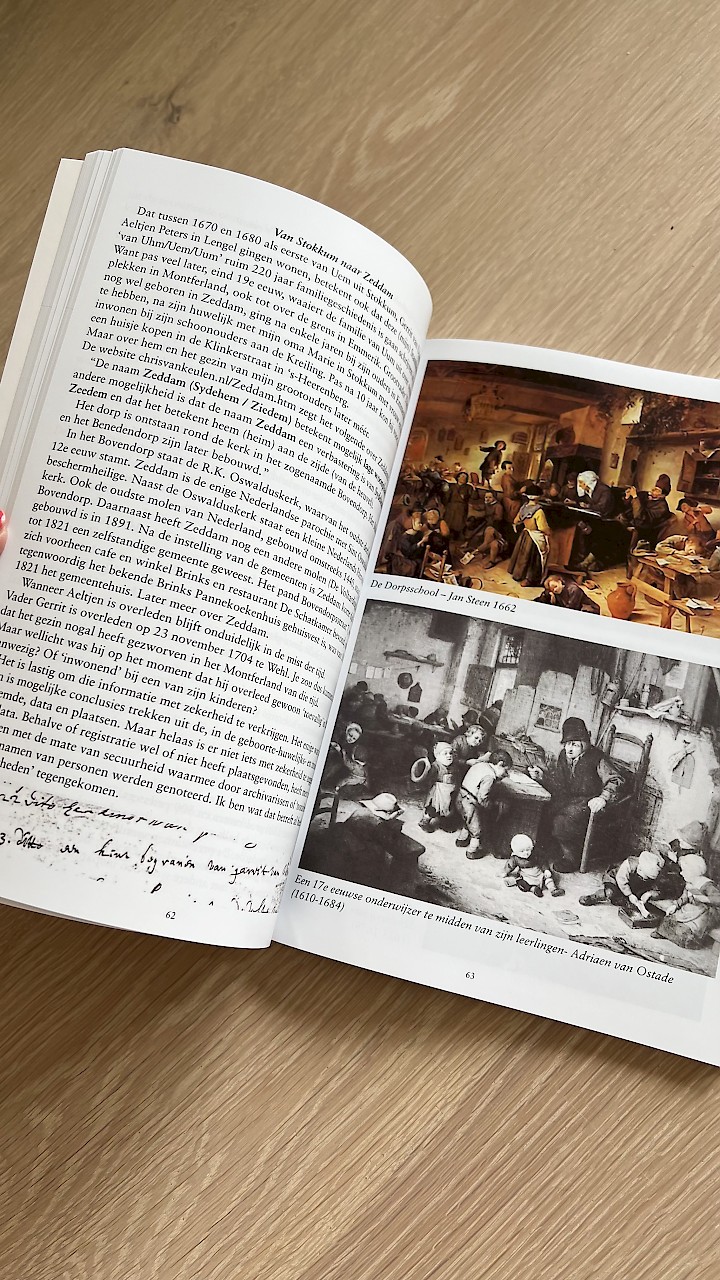 Van Stokkum naar Zeddam
Dat tussen 1670 en 1680 als eerste van Uem uit Stokkum,
Aeltjen Peters in Lengel gingen wonen, betekent ook dat deze
'van Uhm/Uem/Uum' ruim 220 jaar familiegeschiedenis is gaan
Want pas veel later, eind 19e eeuw, waaiert de familie van Uum
plekken in Montferland, ook tot over de grens in Emmerik. Grootvader
nog wel geboren in Zeddam, ging na enkele jaren bij zijn ouders in
te hebben, na zijn huwelijk met mijn oma Marie in Stokkum met
inwonen bij zijn schoonouders aan de Kreiling. Pas na 10 jaar kon
een huisje kopen in de Klinkerstraat in 's-Heerenberg.
Maar over hem en het gezin van mijn grootouders later méér.
De website chrisvankeulen.nl/Zeddam.htm zegt het volgende over
"De naam Zeddam (Sydehem / Ziedem) betekent mogelijk lage
andere mogelijkheid is dat de naam Zeddam een verbastering is van
Zeedem en dat het betekent heem (heim) aan de zijde (van de
Het dorp is ontstaan rond de kerk in het zogenaamde Bovendorp.
en het Benedendorp zijn later bebouwd."
In het Bovendorp staat de R.K. Oswalduskerk, waarvan het
12e eeuw stamt. Zeddam is de enige Nederlandse parochie met Sint
beschermheilige. Naast de Oswalduskerk staat een kleine Nederlands
kerk. Ook de oudste molen van Nederland, gebouwd omstreeks 1441,
Bovendorp. Daarnaast heeft Zeddam nog een andere molen (De
gebouwd is in 1891. Na de instelling van de gemeenten is Zeddam
tot 1821 een zelfstandige gemeente geweest. Het pand Bovendorpsstraat
zich voorheen cafe en winkel Brinks en restaurant De Schatkamer
tegenwoordig het bekende Brinks Pannekoekenhuis gehuisvest is, was
1821 het gemeentehuis. Later meer over Zeddam.
Wanneer Aeltjen is overleden blijft onduidelijk in de mist der tijd.
Vader Gerrit is overleden op 23 november 1704 te Wehl. Je zou dus
dat het gezin nogal heeft gezworven in het Montferland van die tijd.
Maar wellicht was hij op het moment dat hij overleed gewoon
Of 'inwonend' bij een van zijn kinderen?
Het is lastig om die informatie met zekerheid te verkrijgen. Het enige
is mogelijke conclusies trekken uit de, in de geboorte-huwelijks-
data en plaatsen. Maar helaas is er niet iets met zekerheid te
Behalve of registratie wel of niet heeft plaatsgevonden, heeft
met de mate van secuurheid waarmee door archivarissen of
namen van personen werden genoteerd. Ik ben wat dat betreft
tegengekomen.
62
De Dorpsschool – Jan Steen 1662
Een 17e eeuwse onderwijzer te midden van zijn leerlingen- Adriaen van Ostade
(1610-1684)
63